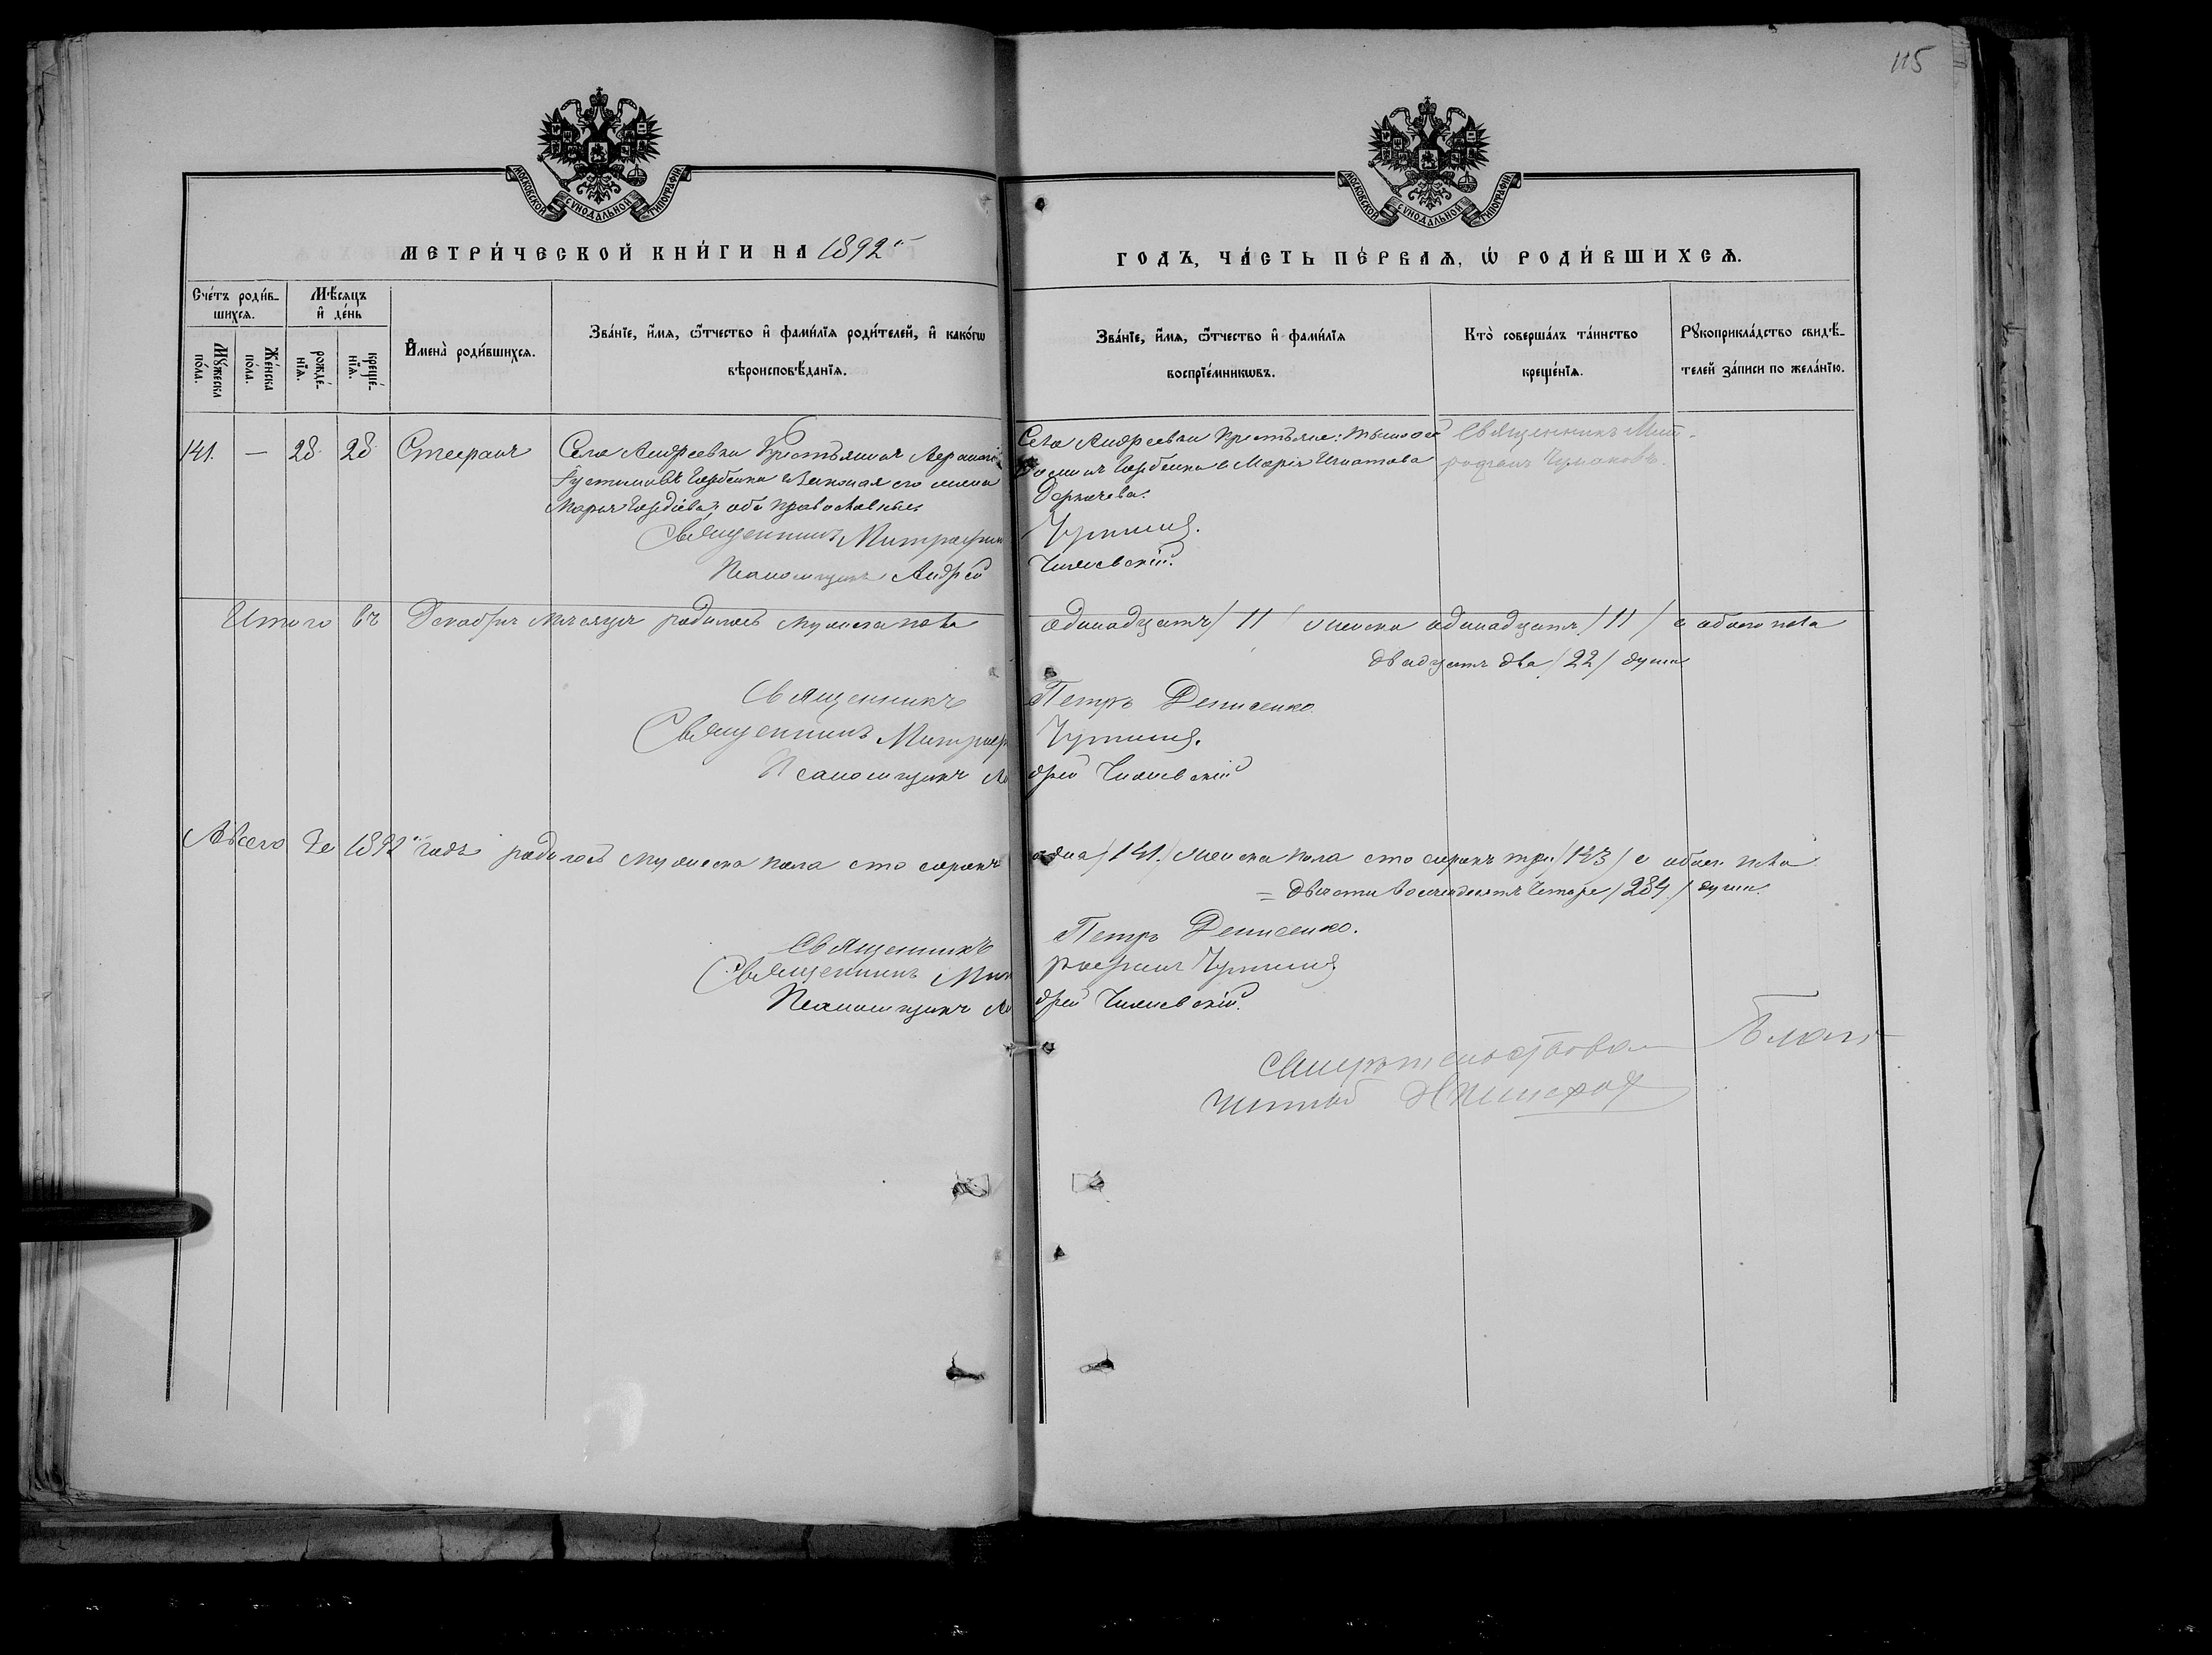 115
МОСКОВСКОЙ СѴНОДАЛЬНОЙ ТИПОГРАФІИ
МОСКОВСКОЙ СѴНОДАЛЬНОЙ ТИПОГРАФІИ
МЕТРИ́ЧЕСКОЙ КНИ́ГИ НА 1892й
ГОДЪ, ЧА́СТЬ ПЕ́РВАѦ, Ѡ҆ РОДИ́ВШИХСѦ.
Сче́тъ роди́в-
шихсѧ.
Мꙋ́жеска
по́ла.
Же́нска
по́ла.
Мѣ́сѧцъ
и҆ де́нь
рожде́-
нїѧ.
креще́-
нїѧ.
И҆мена̀ роди́вшихсѧ.
Зва́нїе, и҆́мѧ, ѻ҆́тчество и҆ фами́лїѧ роди́телей, и҆ како́гѡ
вѣроисповѣ́данїѧ.
Зва́нїе, и҆́мѧ, ѻ҆́тчество и҆ фами́лїѧ
воспрїе́мникѡвъ.
Кто̀ соверша́лъ та́инство
креще́нїѧ.
Рꙋкоприкла́дство свидѣ́-
телей за́писи по жела́нїю.
141. — 28. 28 Стефанъ
Села Андреевки Крестьянинъ
Горбенко и законная его жена
Марія Гордіева; оба православные
Священникъ Митрофанъ
Псаломщикъ Андрей
Села Андреевки Крестьяне:
Горбенко и Марія Игнатова
Деркачева.
Чижевскій.
Священникъ Мит-
рофанъ
Итого въ Декабрѣ мѣсяцѣ родилось мужеска пола одинадцать /11/ женска одинадцать /11/ а обоего пола
двадцать два /22/ души
Священникъ Петръ Денисенко.
Священникъ Митроф
Псаломщикъ Андрей Чижевскій
А всего въ 1892й годъ родилось мужеска пола сто сорокъ одна /141./ женска пола сто сорокъ три /143/ а обоего пола
= двѣсти восемдесятъ четыре /284./ души.
Священникъ Петръ Денисенко.
Священникъ Митрофанъ
Псаломщикъ Андрей Чижевскій.